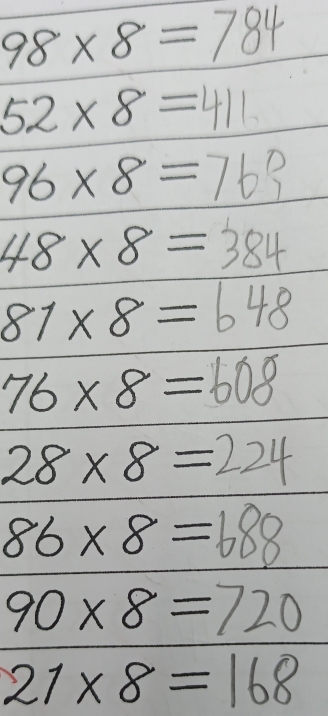 98 × 8 = 784
52 × 8 = 411
96 × 8 = 768
48 × 8 = 384
81 × 8 = 648
76 × 8 = 608
28 × 8 = 224
86 × 8 = 688
90 × 8 = 720
21 × 8 = 168